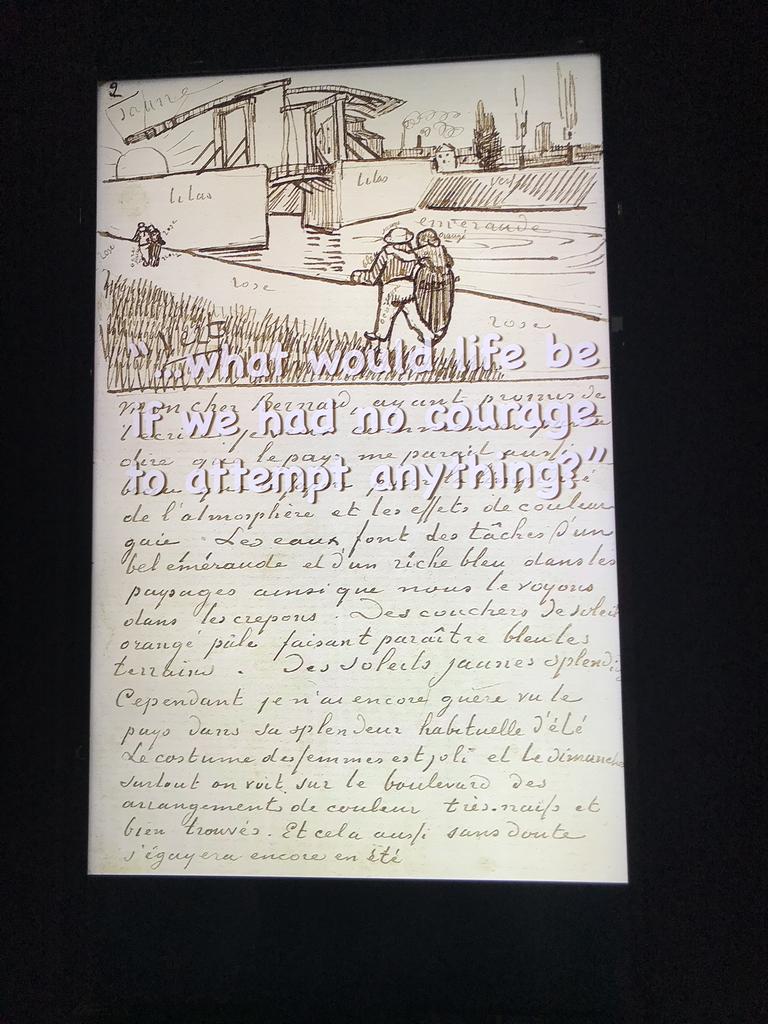 2
Jaune
lilas
lilas
vert
emeraude
orangé
rose
rose
rose
rose
vert
"...what would life be
mon cher Bernard, ayant promis de
if we had no courage
t'écrire je
dire que le pays me parait aussi
to attempt anything?"
de l'atmosphère et les effets de couleur
gaie. Les eaux font des tâches d'un
bel eméraude et d'un riche bleu dans les
paysages ainsi que nous le voyons
dans les crepons. Des couchers de soleil
orangé pâle faisant paraître bleu les
terrains. Des soleils jaunes splendi
Cependant je n'ai encore guère vu le
pays dans sa splendeur habituelle d'été
Le costume des femmes est joli et le dimanche
surtout on voit sur le boulevard des
arrangements de couleur très naifs et
bien trouvés. Et cela aussi sans doute
s'égayera encore en été